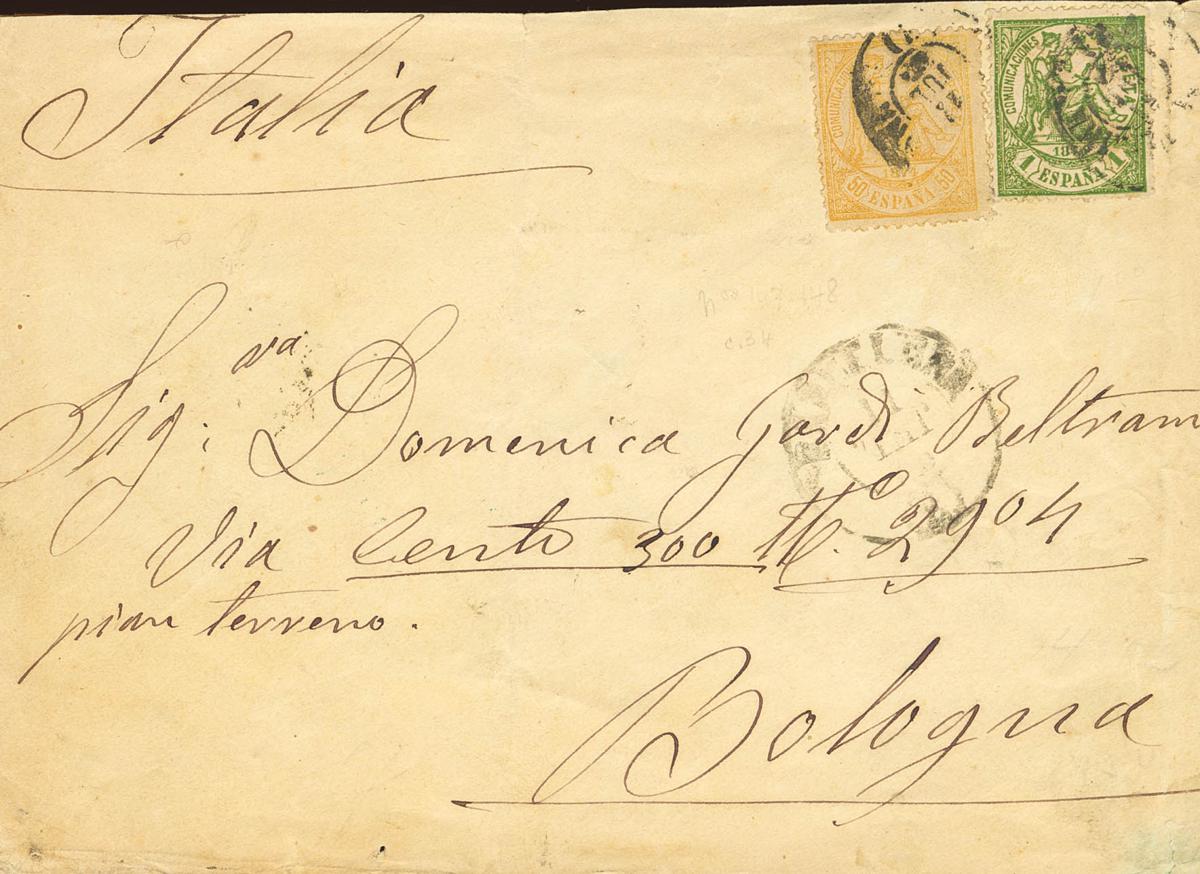 Italia
COMUNICACIONES
1874
50 ESPAÑA 50
JUL
COMUNICACIONES
1 ESPAÑA 1
Sig:va Domenica Jordi Beltram
Via Cento 300 No. 2904
pian terreno.
Bologna